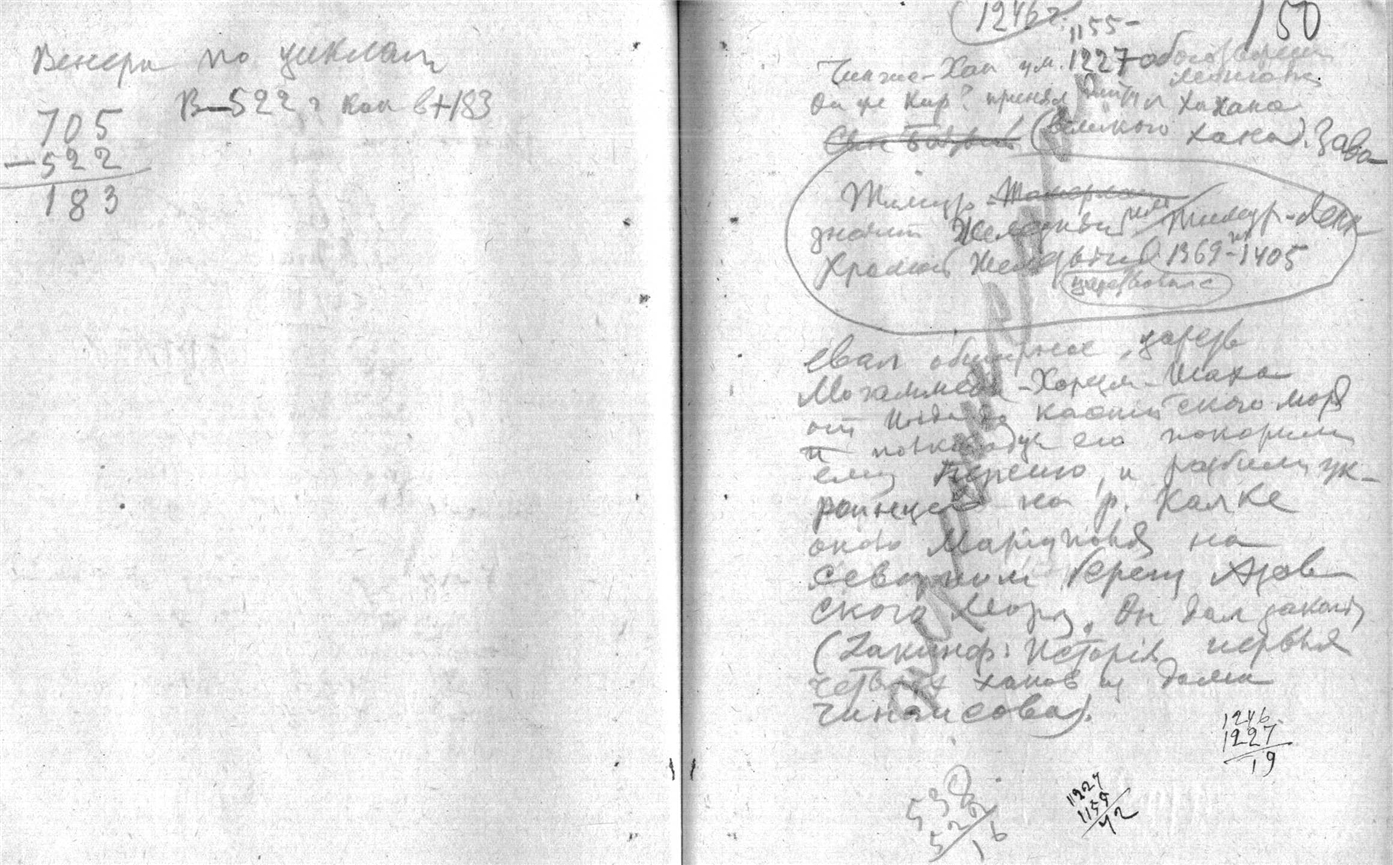 Венера по циклам
В-522 г как в+183
705
-522
183
1246 г.
150
1155-
Чингис-Хан ум. 1227
Он же Кир? принял титул Хахана
(великого хана). Завo-
Тимур
значит Железный или Тимур-Ленк
Хромой Железный 1369-1405
царствовал
евал обширное царств
Могаммеда-Харезм-Шаха
от Инда до Каспийского моря
и полководцы его покорили
ему Персию, и разбили ук-
раинцев на р. Калке
около Мариуполя на
северном берегу Азов-
ского моря. Он дал законы
(Iакинф: Исторія первыя
четырех ханов из дома
Чингисова).
1246
1227
19
1227
1155
72
538
522
16